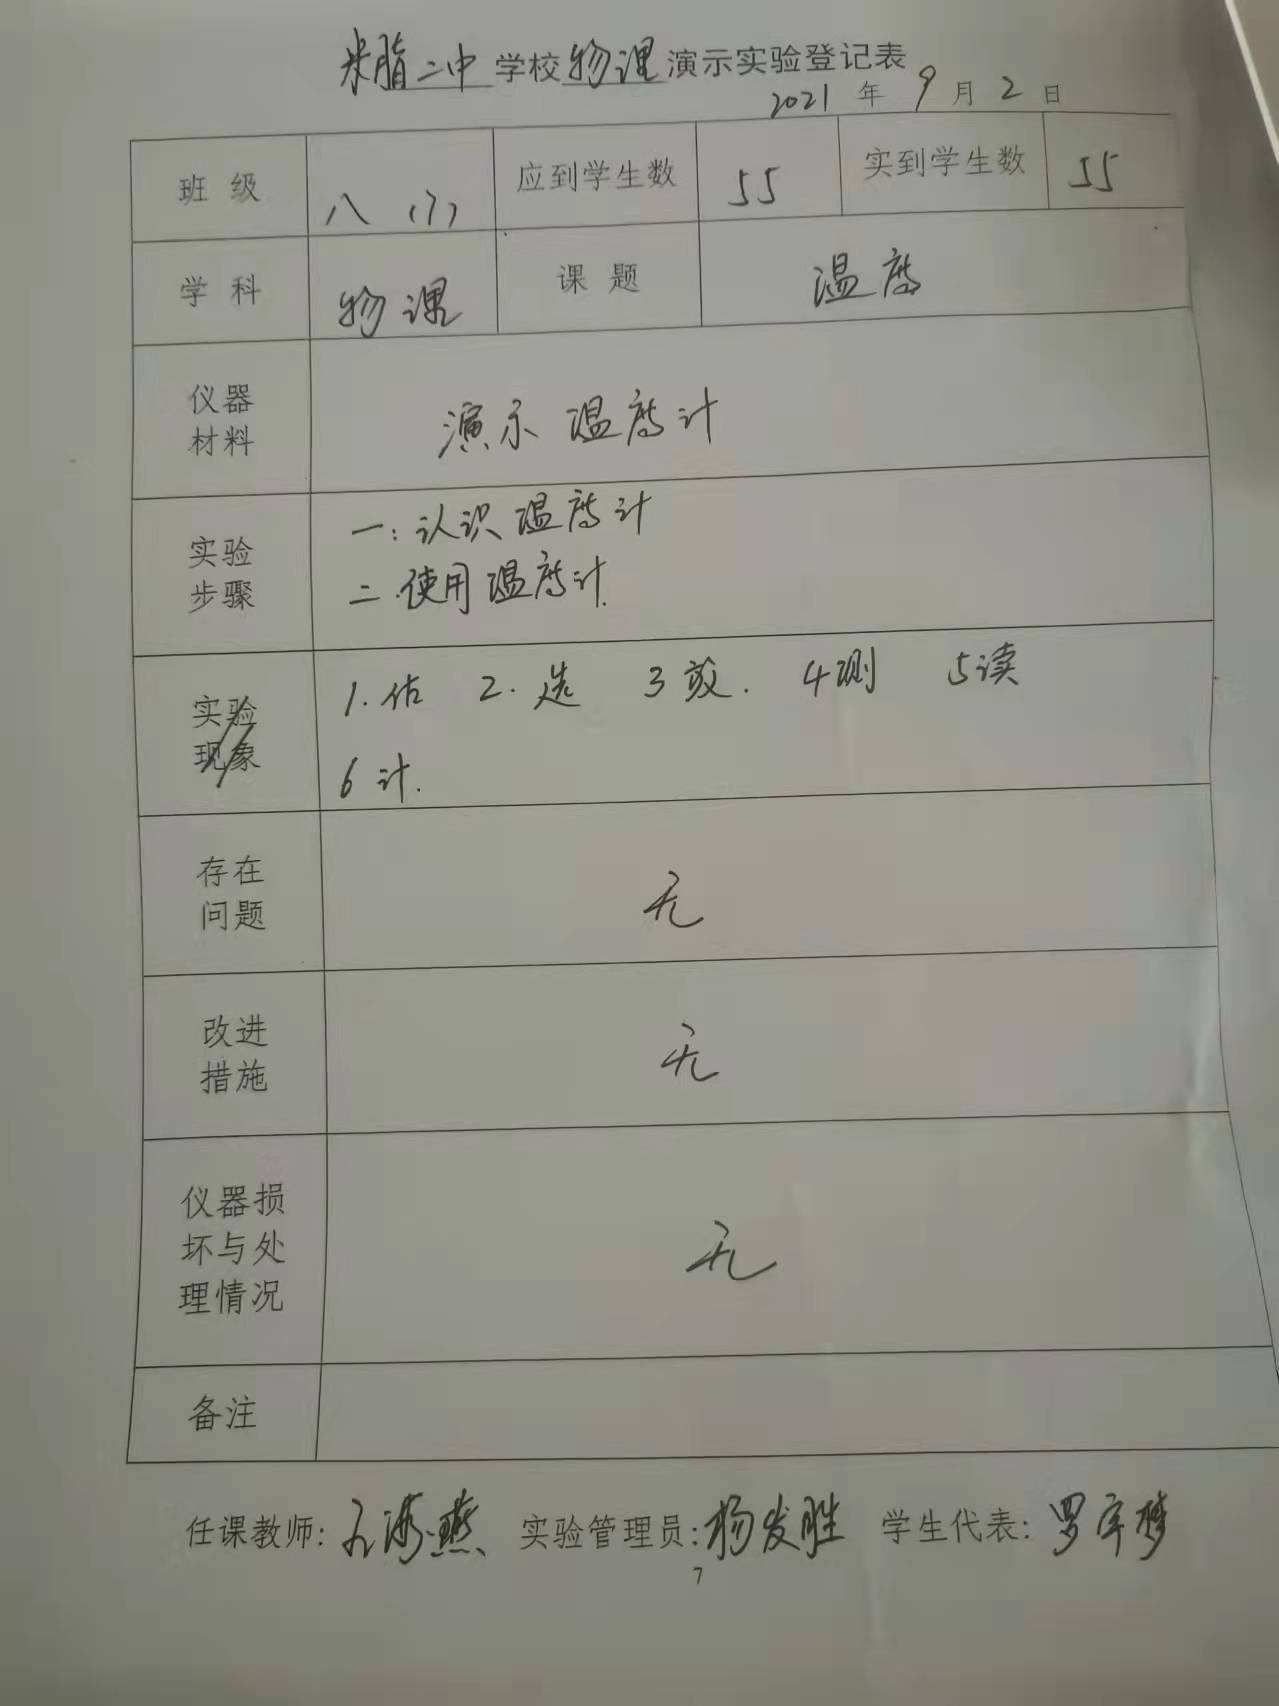 米脂二中学校物理演示实验登记表
2021年9月2日
班级 八(1) 应到学生数 55 实到学生数 55
学科 物理 课题 温度
仪器
材料
演示温度计
实验
步骤
一:认识温度计
二.使用温度计.
实验
现象
1.估 2.选 3放. 4测 5读
6计.
存在
问题
无
改进
措施
无
仪器损
坏与处
理情况
无
备注
任课教师: 海燕 实验管理员:杨发胜 学生代表:罗宇梦
7